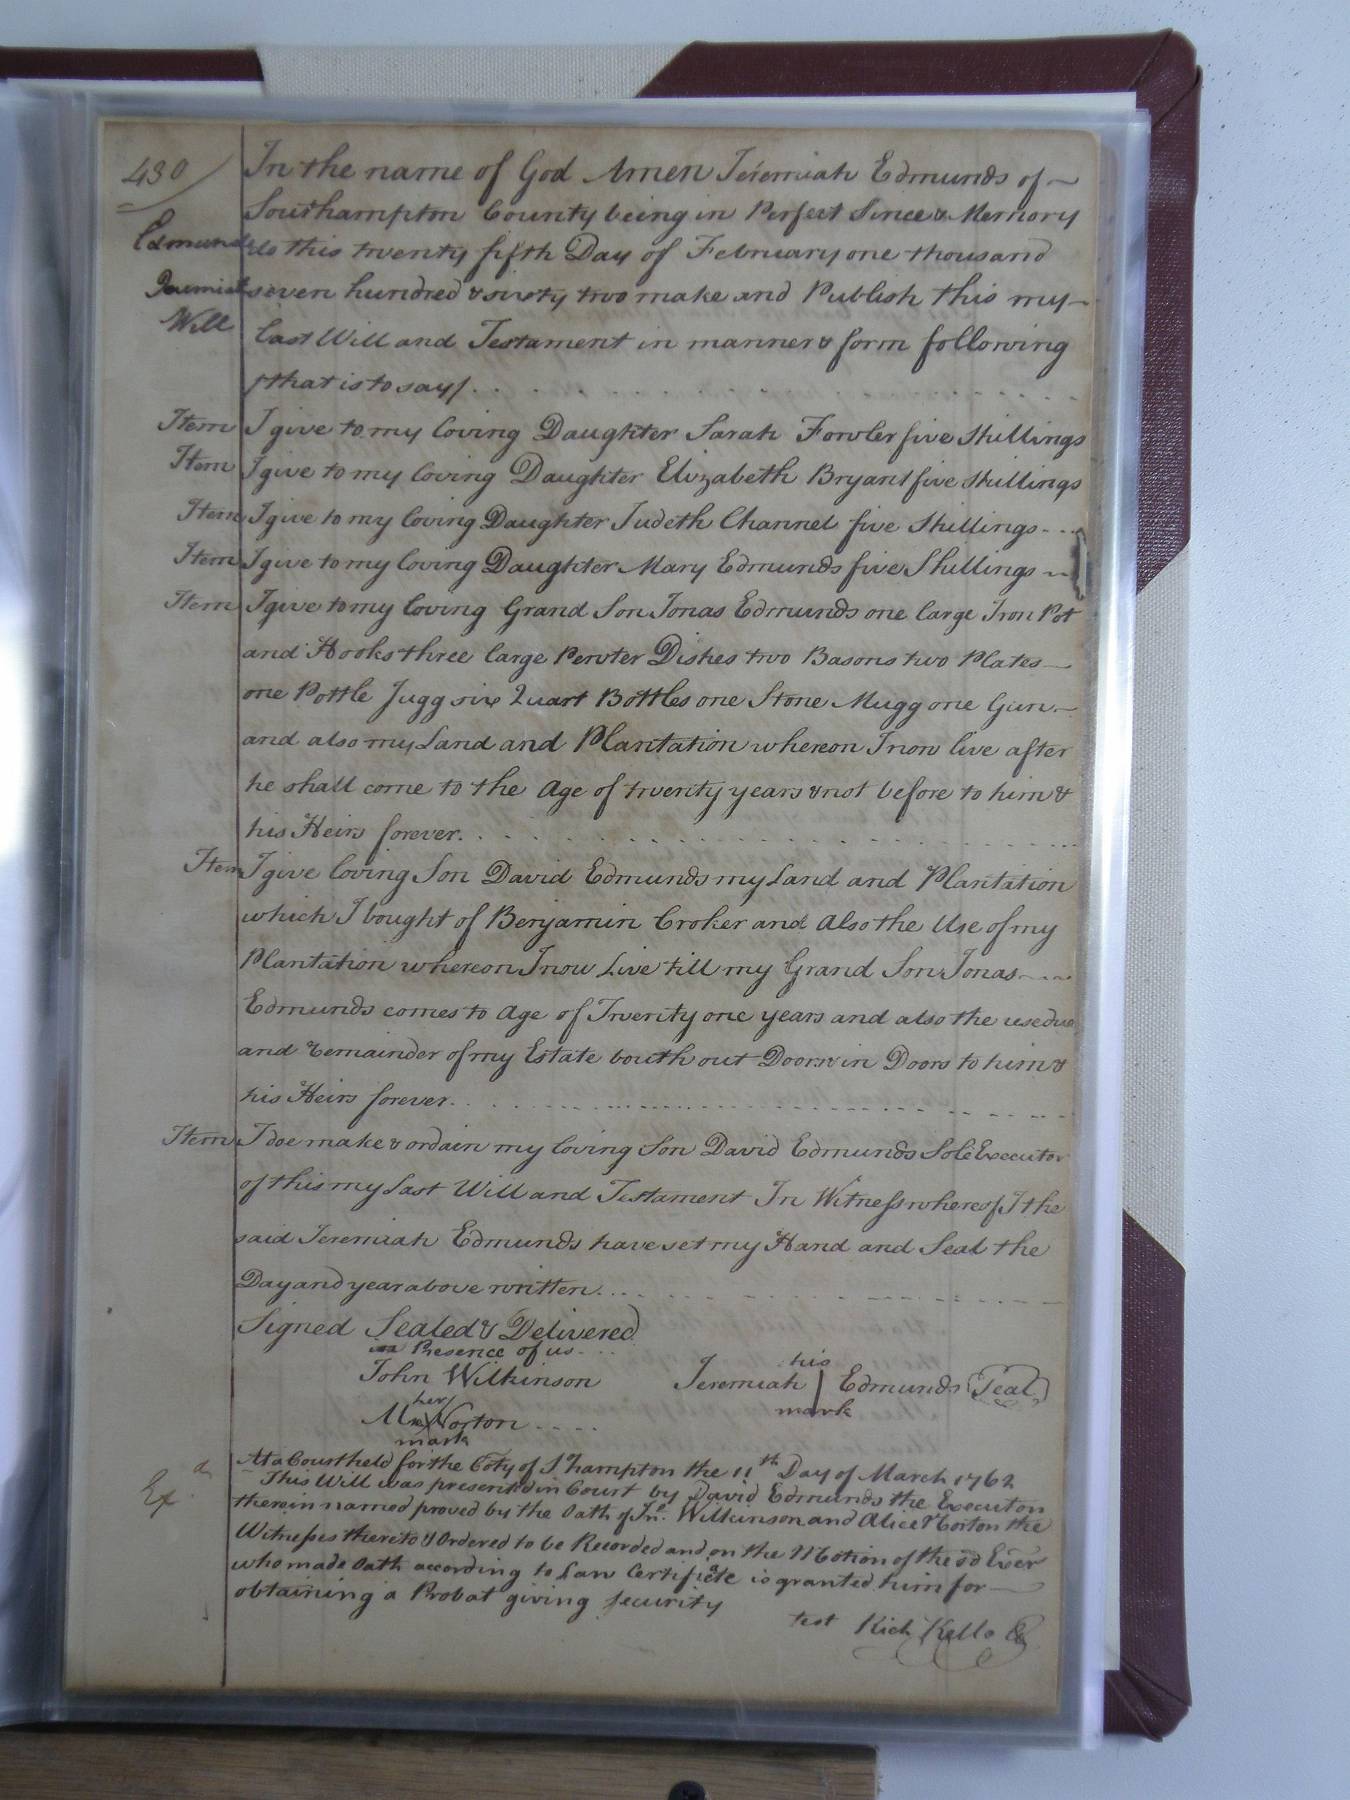 430
In the name of God Amen Jeremiah Edmunds of
Southampton County being in Perfect Since & Memory
Edmunds do this twenty fifth Day of February one thousand
Jeremiah seven hundred & sixty two make and Publish this my
Will Last Will and Testament in manner & form following
/that is to say/
Item I give to my loving Daughter Sarah Fowler five Shillings
Item I give to my loving Daughter Elizabeth Bryant five Shillings
Item I give to my loving Daughter Judeth Channel five Shillings
Item I give to my loving Daughter Mary Edmunds five Shillings
Item I give to my loving Grand Son Jonas Edmunds one large Iron Pot
and Hooks three large Pewter Dishes two Basons two Plates
one Pottle Jugg six Quart Bottles one Stone Mugg one Gun
and also my Land and Plantation whereon I now live after
he shall come to the Age of twenty years & not before to him &
his Heirs forever.
Item I give loving Son David Edmunds my Land and Plantation
which I bought of Benjamin Croker and Also the Use of my
Plantation whereon I now Live till my Grand Son Jonas
Edmunds comes to Age of Twenty one years and also the use due
and remainder of my Estate bouth out Doors & in Doors to him &
his Heirs forever.
Item I doe make & ordain my loving Son David Edmunds Sole Executor
of this my Last Will and Testament In Witness whereof I the
said Jeremiah Edmunds have set my Hand and Seal the
Day and year above written.
Signed Sealed & Delivered
in Presence of us
John Wilkinson
her
Norton
mark
his
Jeremiah | Edmunds Seal
mark
At a Court held for the Coty of S'hampton the 11th Day of March 1762
This Will was presented in Court by David Edmunds the Executor
therein named proved by the Oath of Jno. Wilkinson and Alice Norton the
Exd. Witnesses thereto & Ordered to be Recorded and on the Motion of the sd Exer
who made Oath according to Law Certificate is granted him for
obtaining a Probat giving Security
test Rich Kello